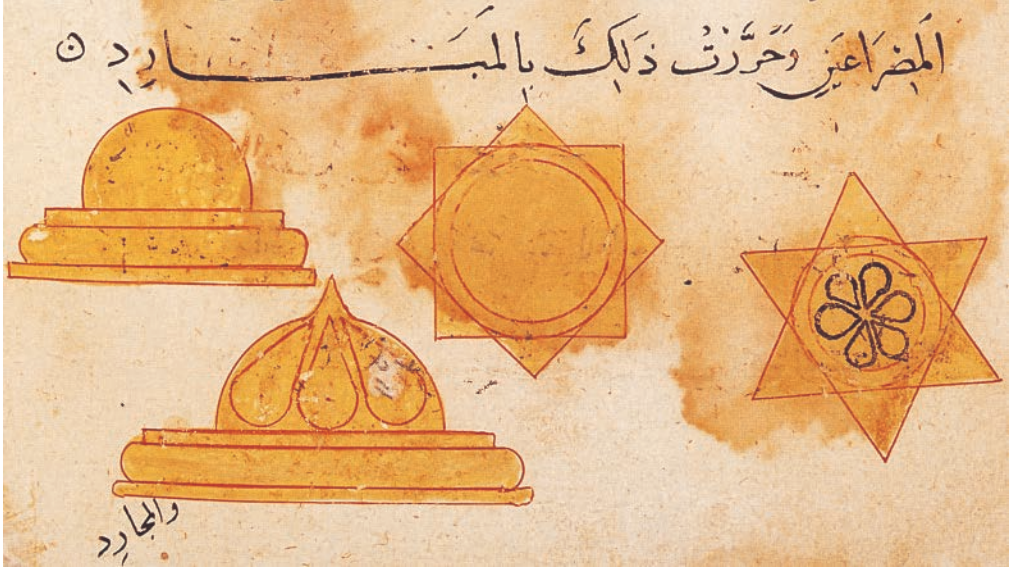 المِصْرَاعَينِ وَحَرَّرْتُ ذَلِكَ بِالمَبَــارِدِ ن
والمجارِد